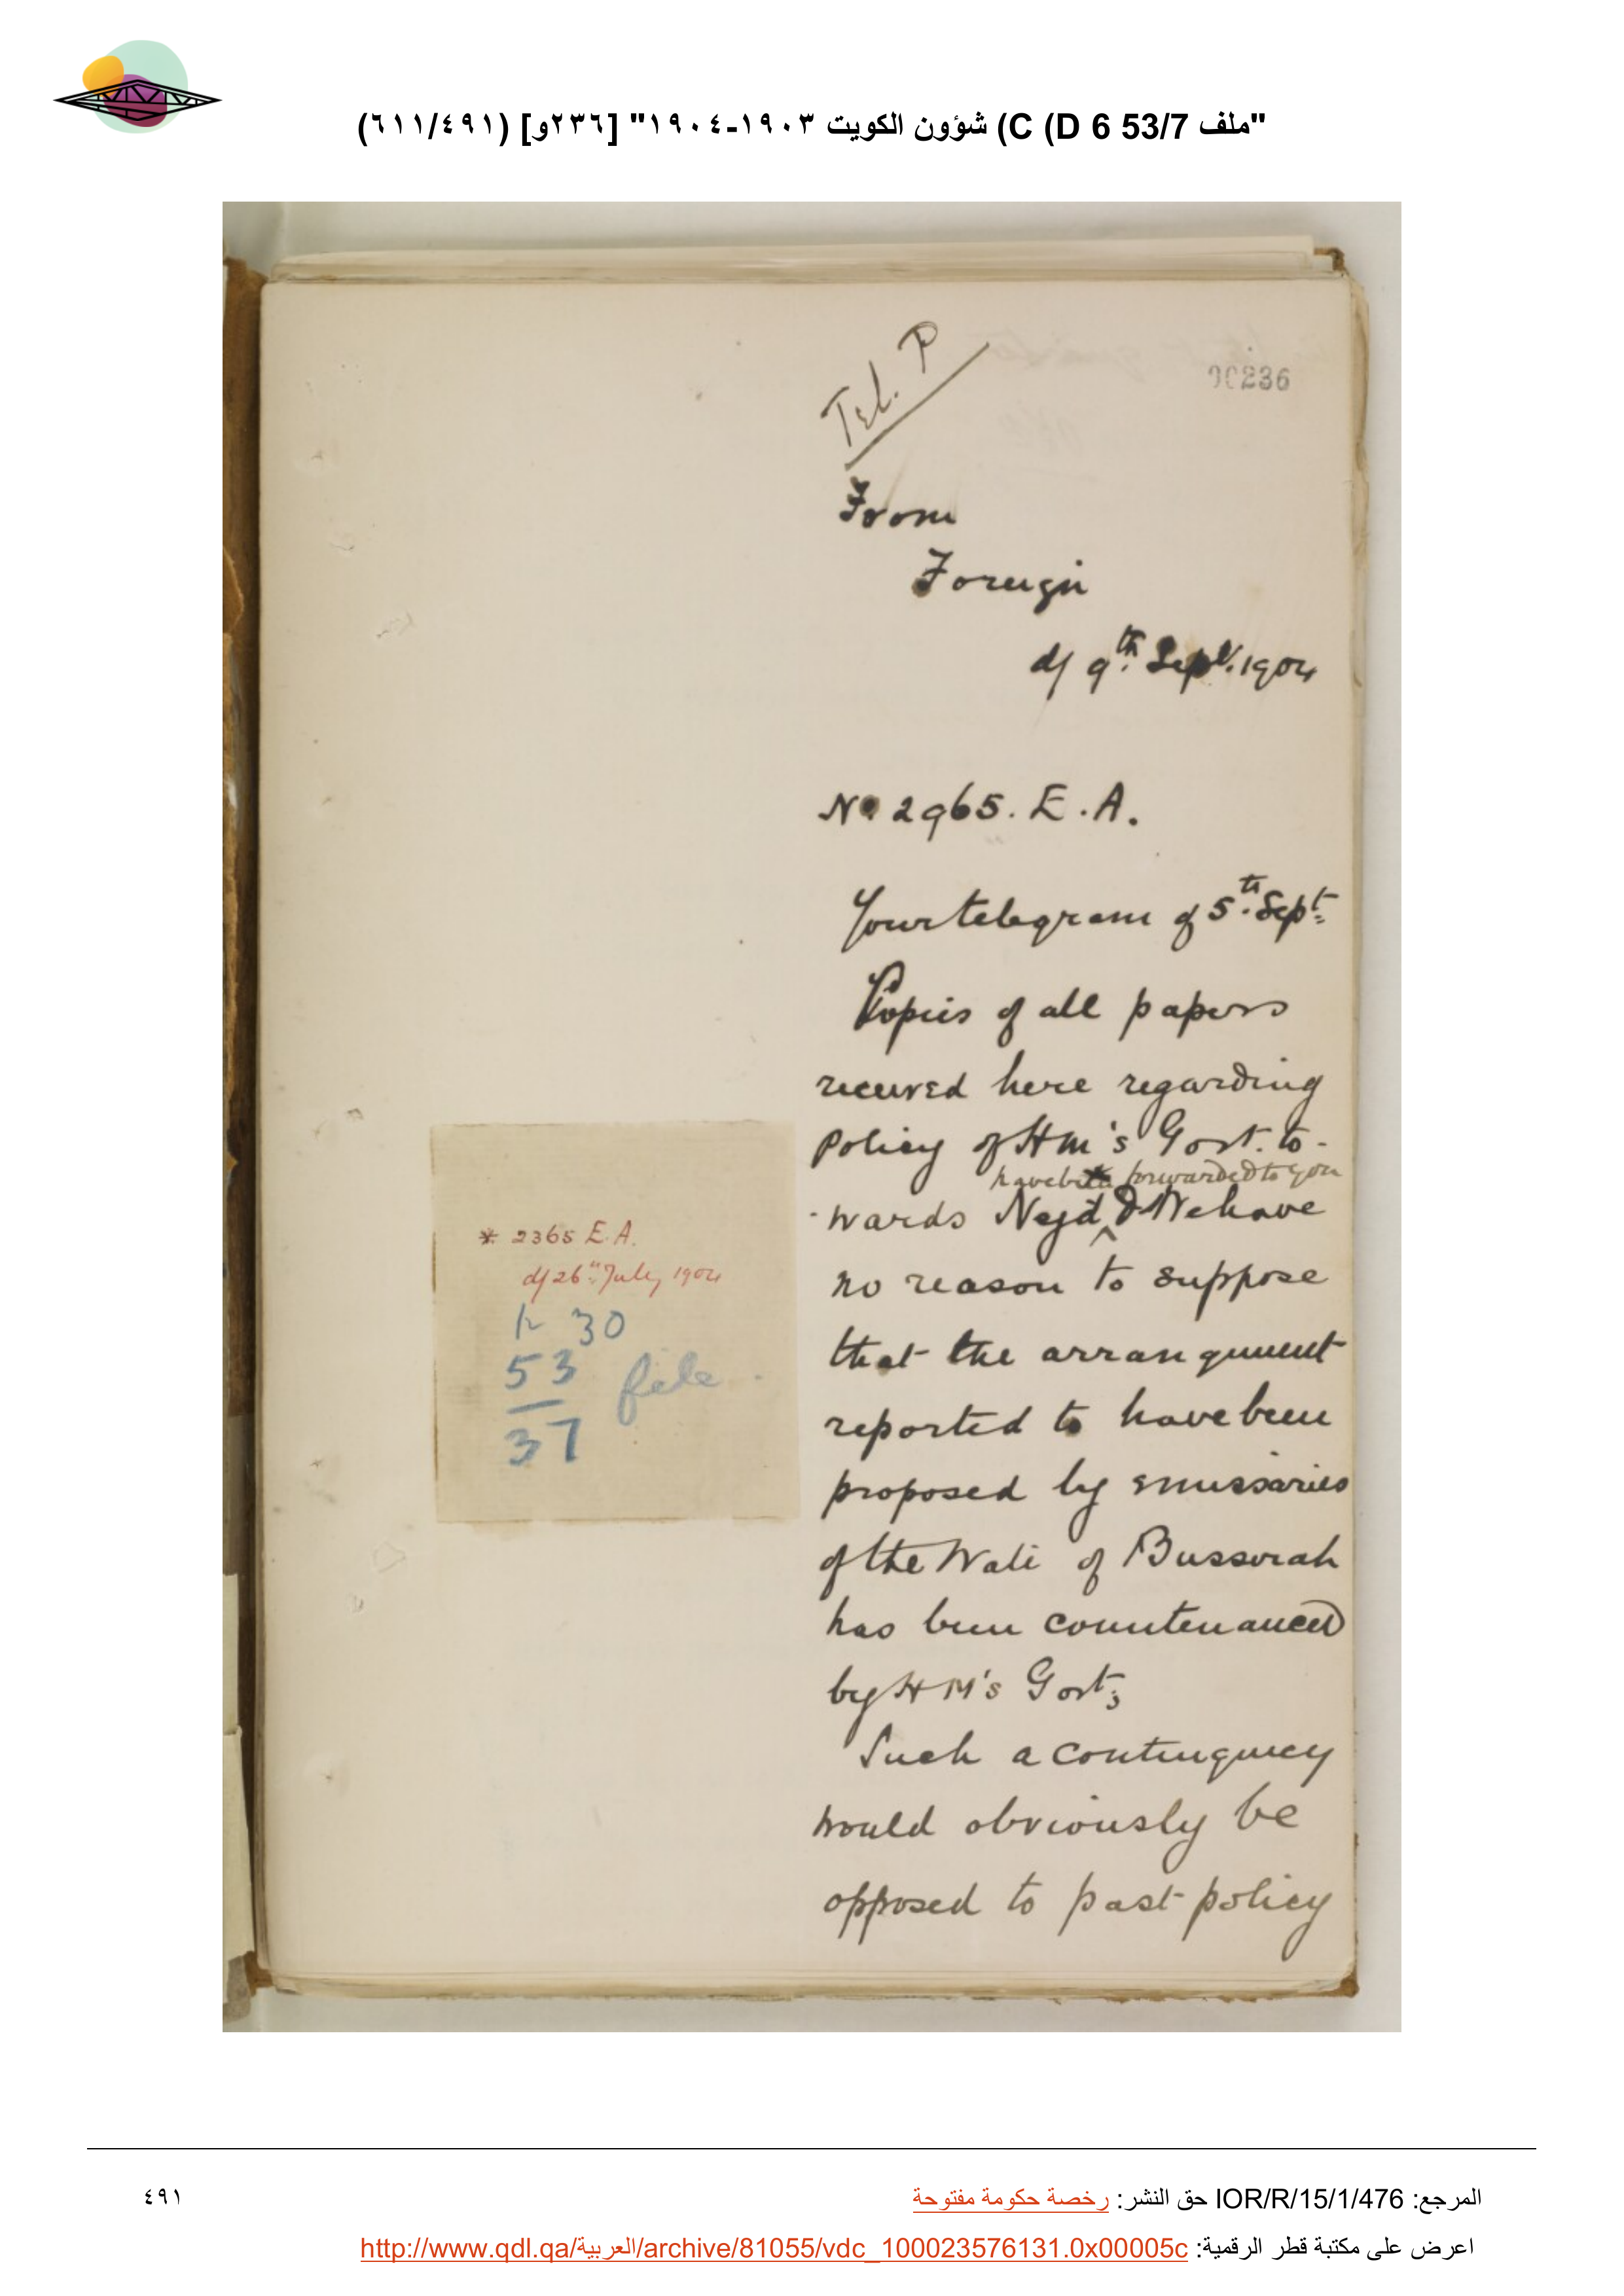 "ملف 53/7 C (D 6) شؤون الكويت ١٩٠٣-١٩٠٤" [٢٣٦و] (٦١١/٤٩١)
Tel. P
00236
From
Foreign
d/ 9th Sept. 1904
No 2965. E. A.
Your telegram of 5th Sept.
Copies of all papers
received here regarding
policy of HM's Govt. to-
have been forwarded to you
-wards Nejd & We have
no reason to suppose
that the arrangement
reported to have been
proposed by emissaries
of the Wali of Bussorah
has been countenanced
by HM's Govt;
Such a contingency
would obviously be
opposed to past policy
* 2365 E. A.
d/ 26th July 1904
30
53 file.
37
المرجع: IOR/R/15/1/476 حق النشر: رخصة حكومة مفتوحة
٤٩١
اعرض على مكتبة قطر الرقمية: http://www.qdl.qa/العربية/archive/81055/vdc_100023576131.0x00005c